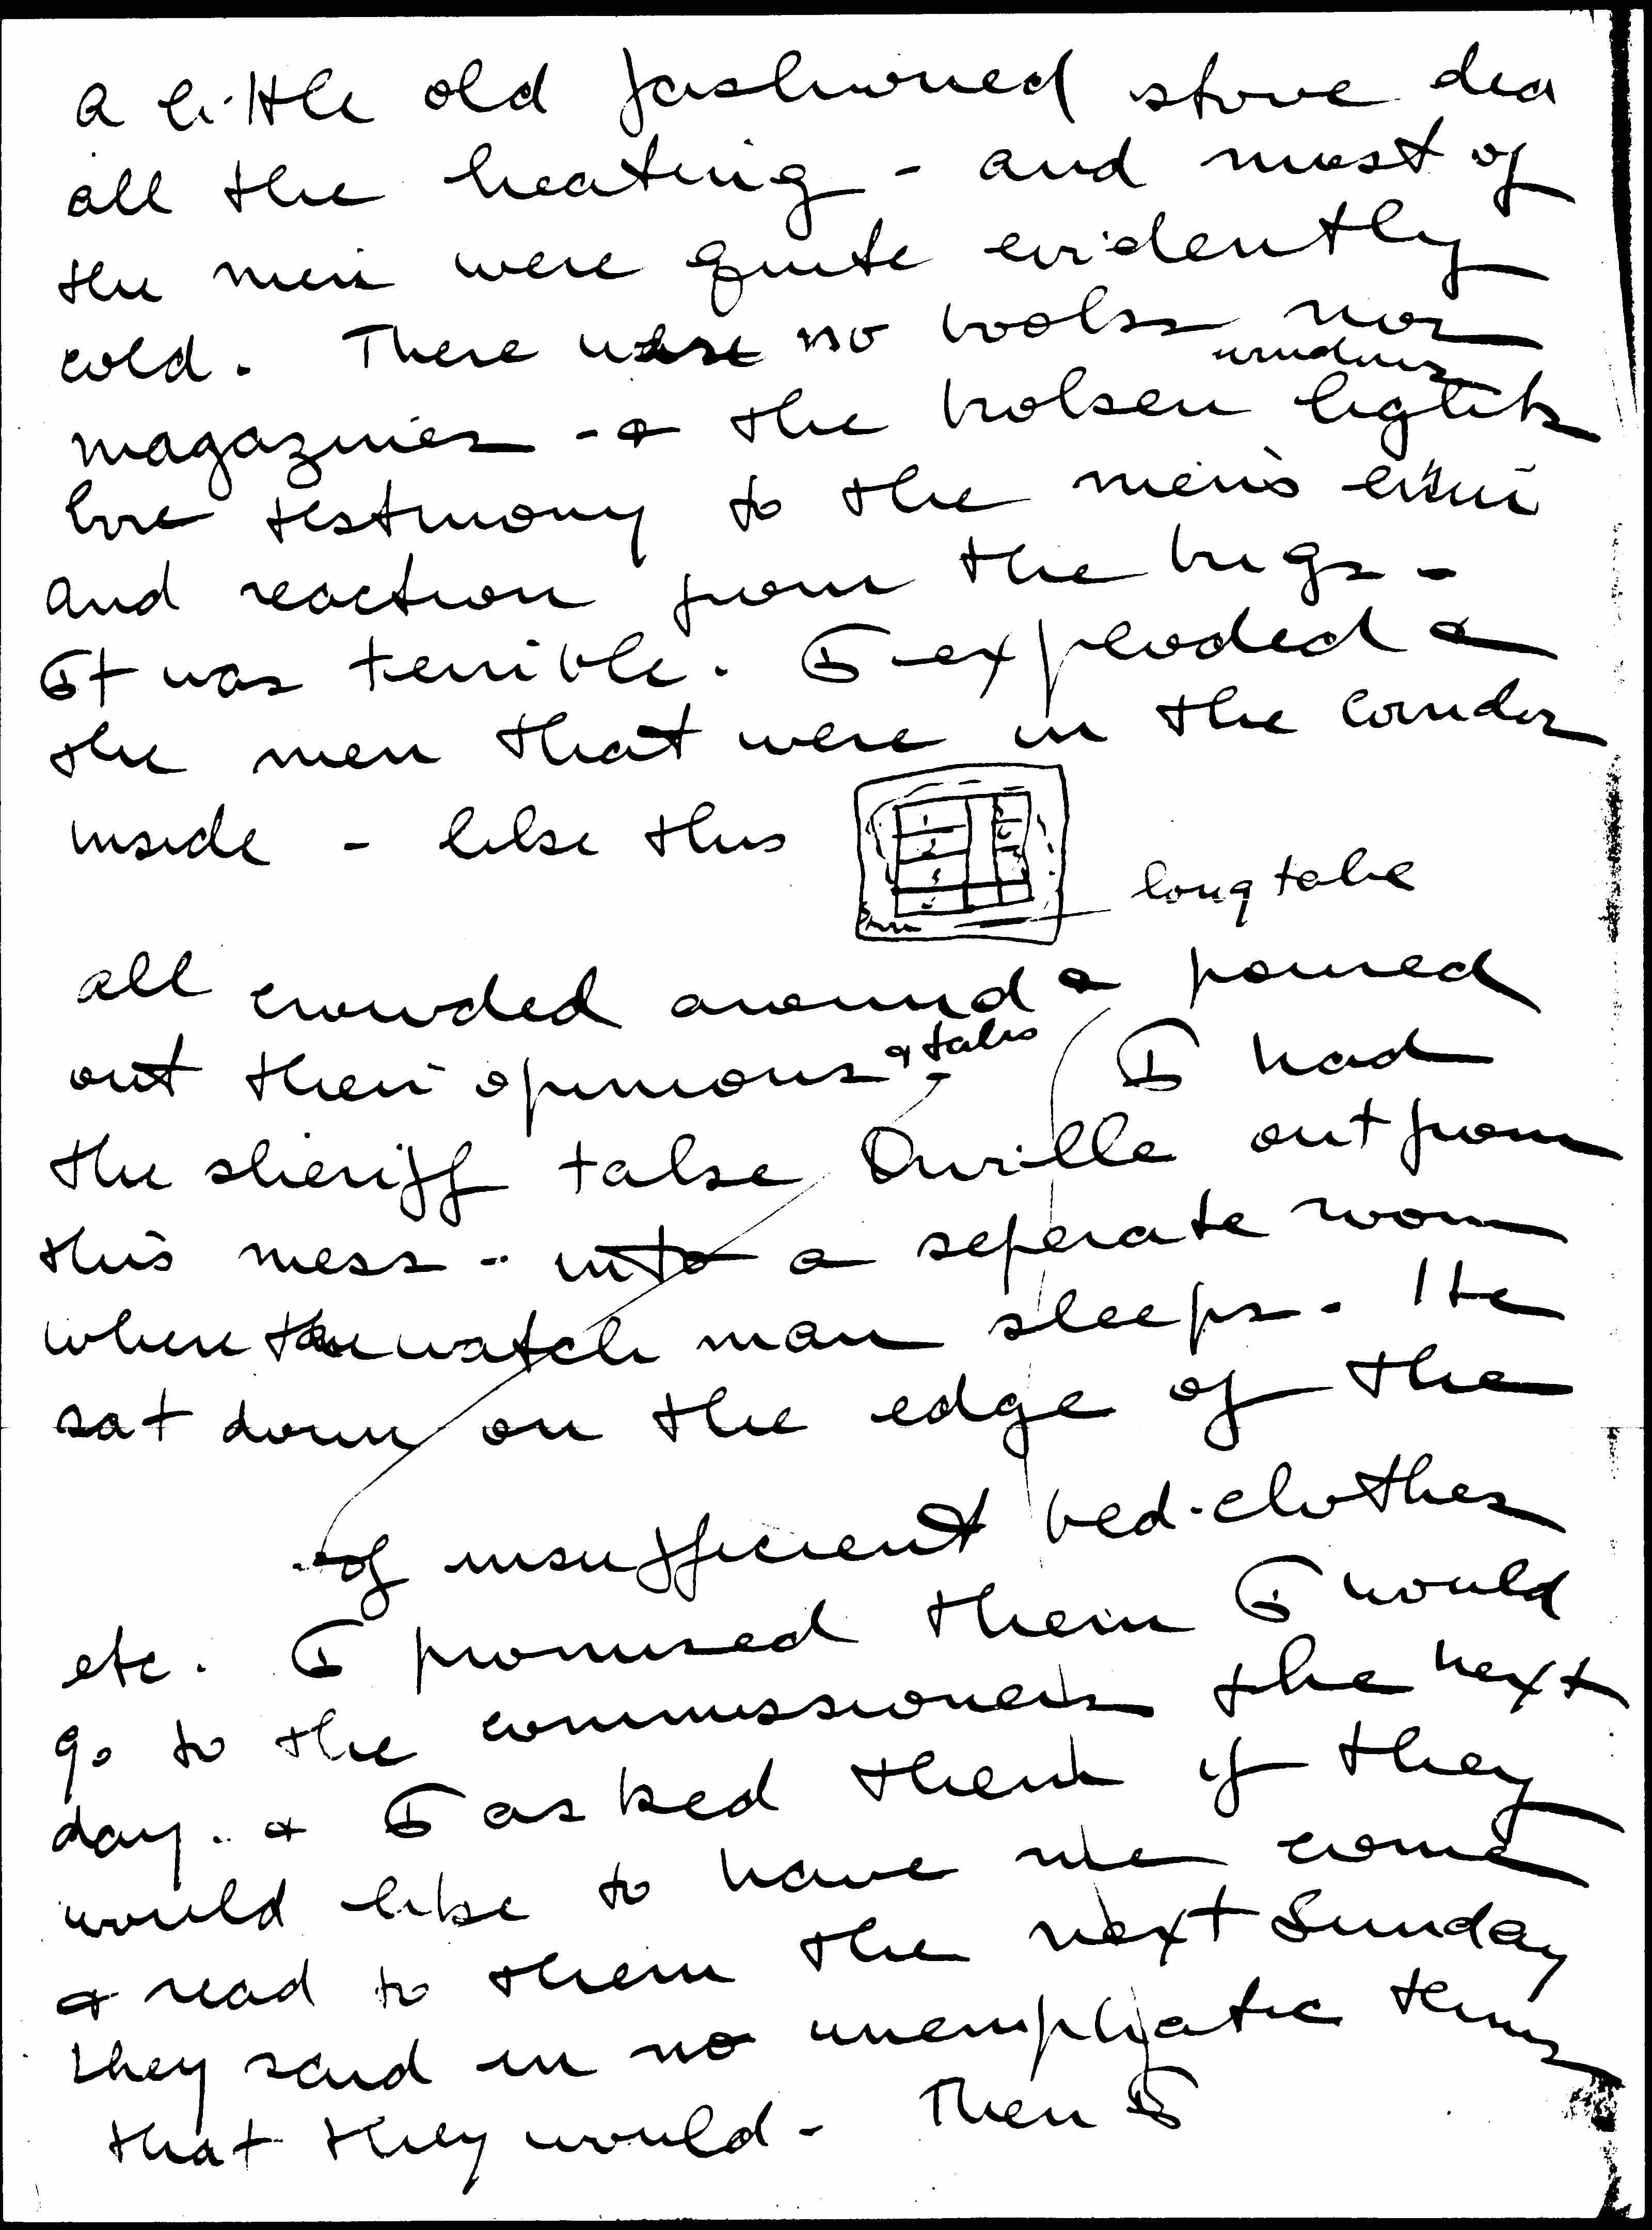 a little old fashioned stove did
all the heating - and most of
the men were quite evidently
cold. There were no books nor
windows
magazines - & the broken lights
bore testimony to the men's ennui
and reaction from the bugs -
It was terrible. I exploded &
the men that were in the corridor
inside - like this
long table
all crowded around & poured
out their opinions & tales I had
the sheriff take Orville out from
this mess - into a seperate room
where the watch man sleeps. He
sat down on the edge of the
of insufficient bed-clothes
etc. I promised them I would
go to the commissioners the next
day. & I asked them if they
would like to have me come
& read to them the next Sunday
they said in no unemphatic terms
that they would - Then I